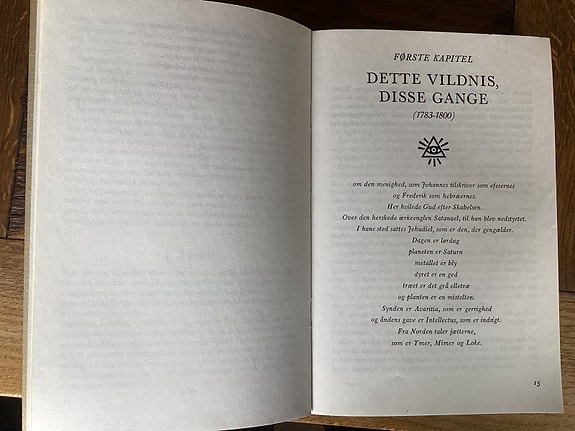 FØRSTE KAPITEL
DETTE VILDNIS,
DISSE GANGE
(1783-1800)
om den menighed, som Johannes tilskriver som efesernes
og Frederik som hebræernes.
Her hvilede Gud efter Skabelsen.
Over den herskede ærkeenglen Satanael, til han blev nedstyrtet.
I hans sted sattes Jehudiel, som er den, der gengælder.
Dagen er lørdag
planeten er Saturn
metallet er bly
dyret er en ged
træet er det grå elletræ
og planten er en mistelten.
Synden er Avaritia, som er gerrighed
og åndens gave er Intellectus, som er indsigt.
Fra Norden taler jætterne,
som er Ymer, Mimer og Loke.
15